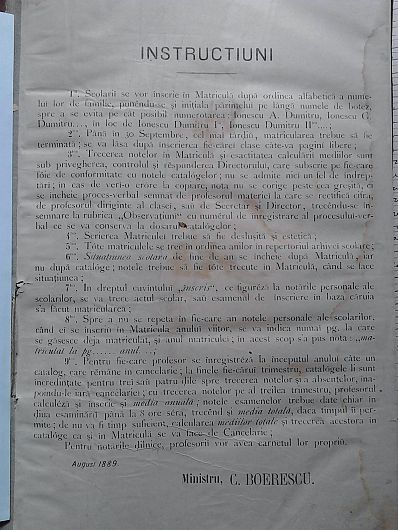 INSTRUCTIUNI
1°. Scolarii se vor inscrie in Matriculă după ordinea alfabetică a nume-
lui lor de familie, punêndu-se și inițiala părintelui pe lângă numele de botez,
spre a se evita pe cât posibil numerotarea: Ionescu A. Dumitru, Ionescu G.
Dumitru...., in loc de Ionescu Dumitru I°, Ionescu Dumitru II°....;
2°. Până in 30 Septembre, cel mai târdiu, matricularea trebue să fie
terminată; se va lăsa după inscrierea fie-cărei clase câte-va pagini libere;
3°. Trecerea notelor in Matriculă și exactitatea calculărei mediilor sunt
sub privegherea, controlul și rĕspunderea Directorului, care subscrie pe fie-care
fóie de conformitate cu notele cataloagelor; nu se admite nici un fel de indrep-
tări; in cas de veri-o eróre la copiare, nota nu se corige peste cea greșită, ci
se incheie proces-verbal semnat de profesorul materiei la care se rectifică cifra,
de profesorul diriginte al clasei, sau de Secretar și Director, trecêndu-se in-
semnare la rubrica „Observațiuni“ cu numĕrul de inregistrare al procesului-ver-
bal ce se va conserva la dosarul cataloagelor;
4°. Scrierea Matriculei trebue să fie deslușită și estetică;
5°. Tóte matriculele se trec in ordinea anilor in repertoriul arhivei scolare;
6°. Situațiunea scolară de fine de an se incheie după Matriculă, iar
nu după cataloge; notele trebue să fie tóte trecute in Matriculă, când se face
situațiunea;
7°. In dreptul cuvîntului „înscris“, ce figuréză la notările personale ale
scolarilor, se va trece actul scolar, sau esamenul de inscriere in baza căruia
s'a făcut matricularea;
8°. Spre a nu se repeta in fie-care an notele personale ale scolarilor,
când ei se inscriu in Matricula anului viitor, se va indica numai pg. la care
se găsesce deja matriculat, și anul matriculei; in acest scop s'a pus nota: „ma-
triculat la pg...... anul...;
9°. Pentru fie-care profesor se inregistréză la inceputul anului câte un
catalog, care rĕmâne in cancelarie; la finele fie-cărui trimestru, catalógele îi sunt
incredințate pentru trei sau patru dile spre trecerea notelor și a absențelor, ina-
poindu-le iară cancelariei; cu trecerea notelor pe al treilea trimestru, profesorul
calculéză și inscrie și media anuală; notele esamenelor trebue date chiar in
diua esaminării până la 8 ore séra, trecênd și media totală, daca timpul îi per-
mite; de nu va fi timp suficient, calcularea mediilor totale și trecerea acestora in
cataloge ca și in Matriculă se va face de Cancelarie;
Pentru notările dilnice, profesorii vor avea carnetul lor propriu.
August 1889.
Ministru, C. BOERESCU.